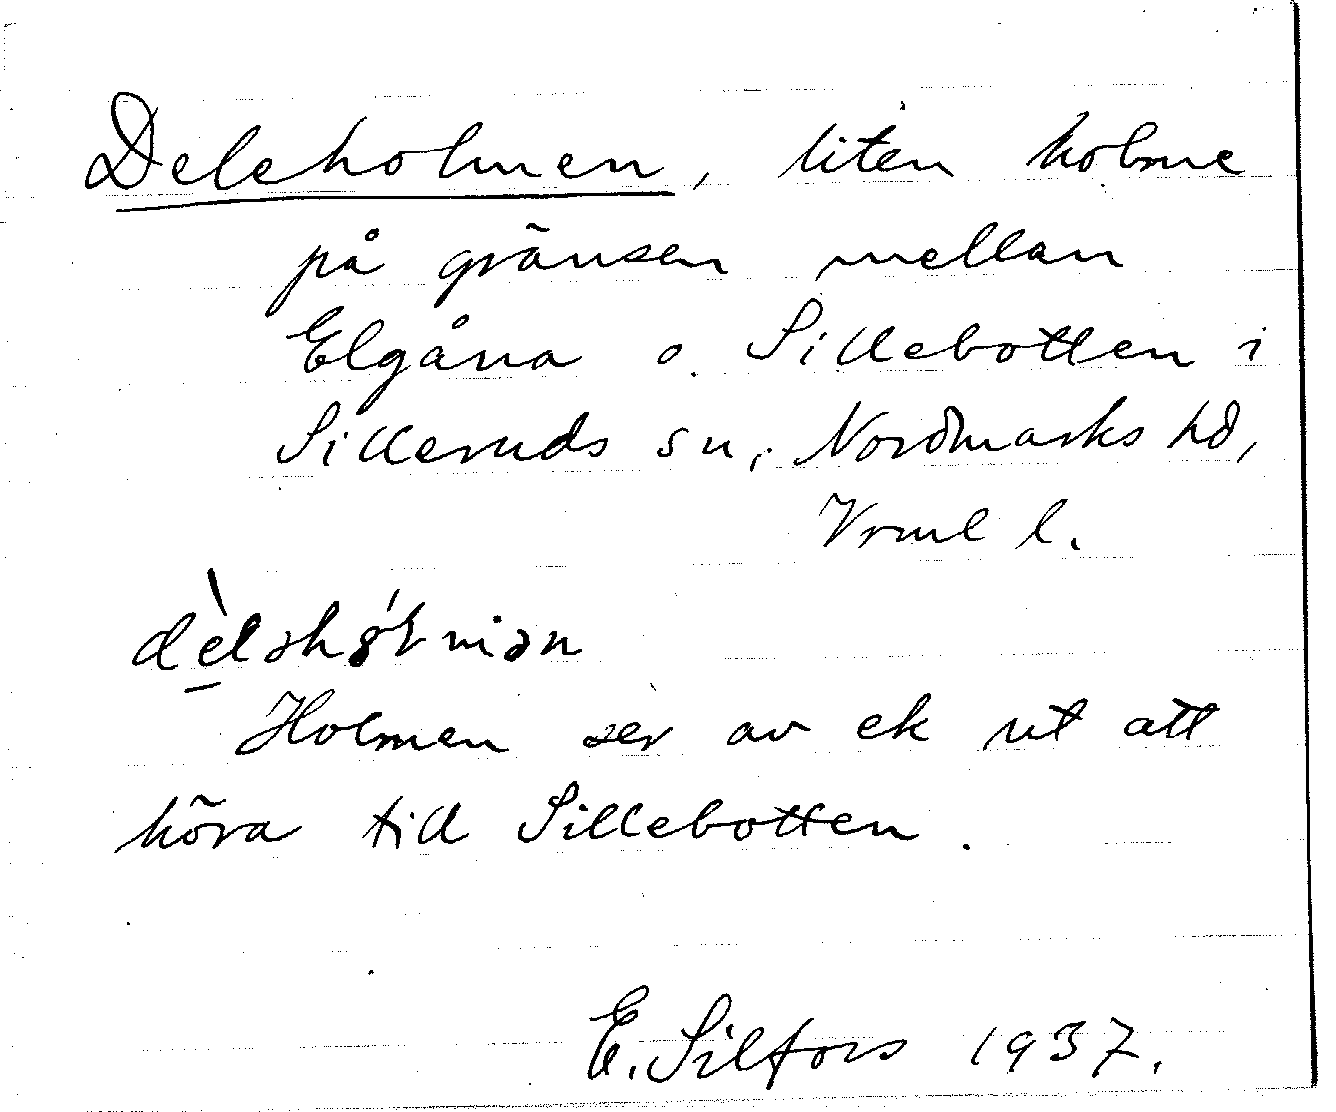 Deleholmen, liten holme
på gränsen mellan
Elgåna o. Sillebotten i
Silleruds sn, Nordmarks hd,
Vrml l.
Holmen ser av ek ut att
höra till Sillebotten.
E. Silfors 1937.